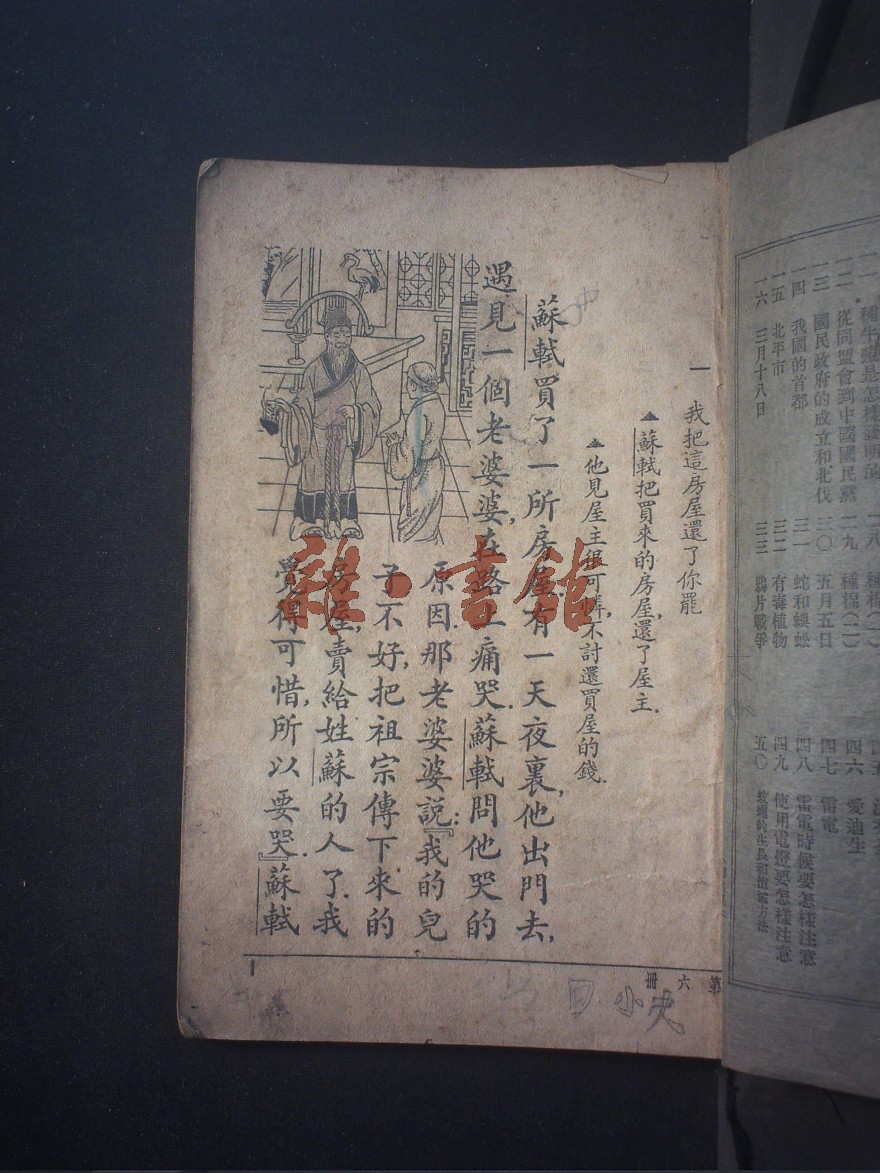 一 我把這房屋還了你罷
蘇軾把買來的房屋,還了屋主.
他見屋主很可憐,不討還買屋的錢.
蘇軾買了一所房屋.有一天夜裏,他出門去,
遇見一個老婆婆,在路上痛哭.蘇軾問他哭的
原因.那老婆婆說:『我的兒
子不好,把祖宗傳下來的
房屋,賣給姓蘇的人了.我
覺得可惜,所以要哭.』蘇軾
第六冊
1
小史
從同盟會到中國國民黨 二九 種棉(二) 四六 愛迪生
一三 國民政府的成立和北伐 三〇 五月五日 四七 雷電
一四 我國的首都 三一 蛇和蜈蚣 四八 雷電時候要怎樣注意
一五 北平市 三二 有毒植物 四九 使用電燈要怎樣注意
一六 三月十八日 三三 鴉片戰爭 五〇
雜·書館